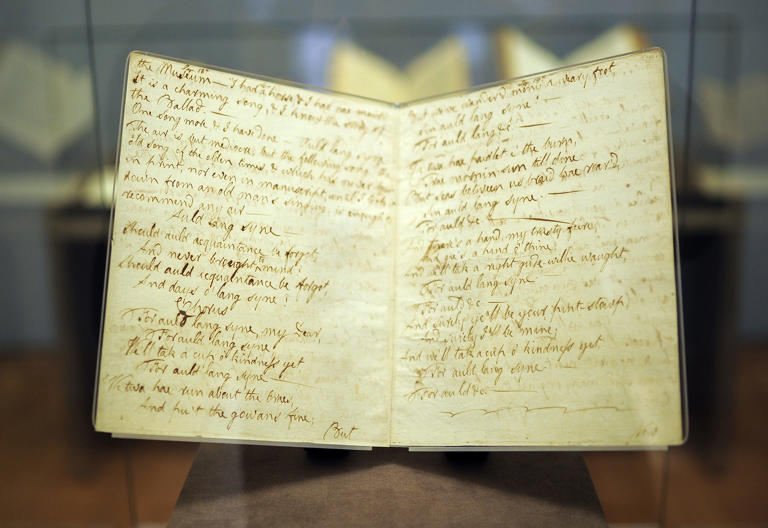 the Museum — I had a horse & I had nae mair
It is a charming song, & I know the story of
the Ballad. —
One song more, & I have done — Auld lang syne
The air is but mediocre; but the following song, the
old song of the olden times, & which has never been
in print, nor even in manuscript, untill I took it
down from an old man's singing, is enough to
recommend any air —
Auld lang syne —
Should auld acquaintance be forgot,
And never brought to mind?
Should auld acquaintance be forgot,
And days o' lang syne?
Chorus
For auld lang syne, my Dear,
For auld lang syne,
We'll take a cup o' kindness yet
For auld lang syne —
We twa hae run about the braes,
And pu't the gowans fine;
But
But we've wander'd mony a weary foot,
Sin auld lang syne. —
For auld lang &c. —
We twa hae paidl't i' the burn,
Frae mornin sun till dine:
But seas between us braid hae roar'd,
Sin auld lang syne. —
For auld &c —
And there's a hand, my trusty feire,
And gie's a hand o' thine;
And we'll tak a right gude-willie waught,
For auld lang syne. —
For auld &c —
And surely ye'll be your pint-stowp,
And surely I'll be mine;
And we'll tak a cup o' kindness yet
For auld lang syne. —
For auld &c —